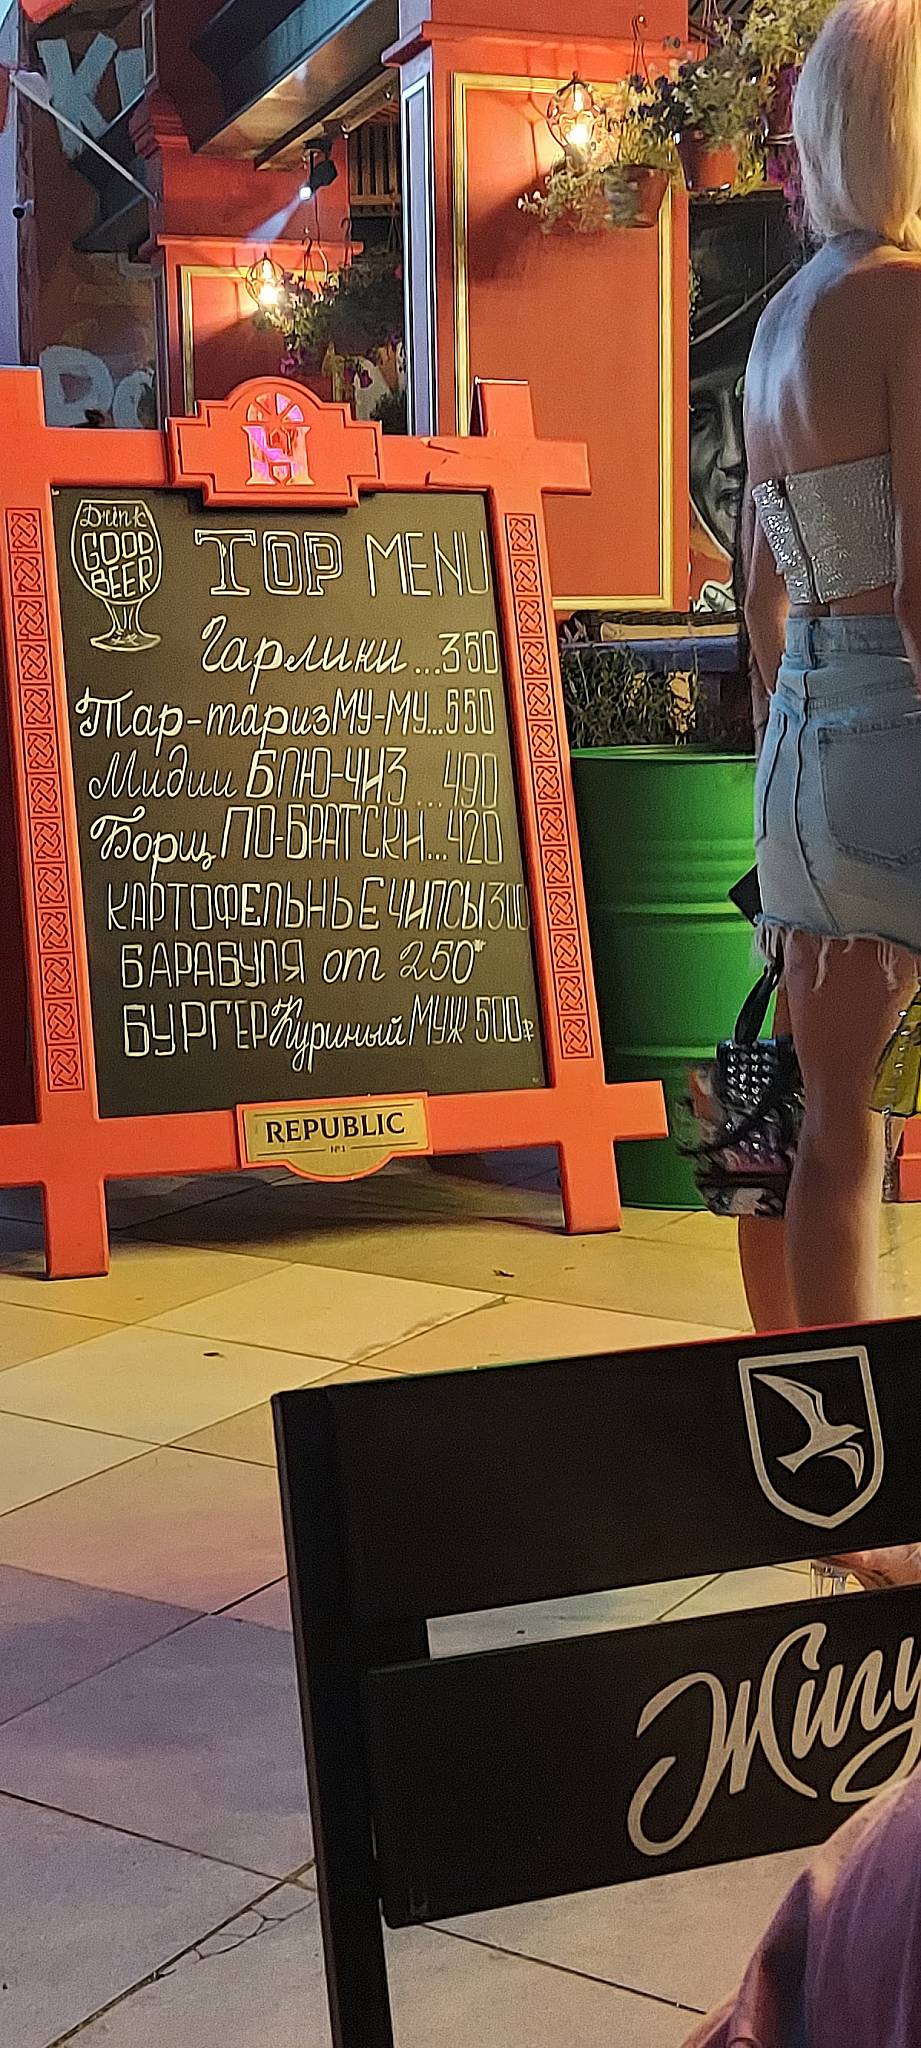 Drink
GOOD
BEER
TOP MENU
Гарлики ...350
Тар-тариз МУ-МУ...550
Мидии БЛЮ-ЧИЗ ...490
Борщ ПО-БРАТСКИ...420
КАРТОФЕЛЬНЫЕ ЧИПСЫ 300
БАРАБУЛЯ от 250
БУРГЕР Куриный МУЖ 500₽
H
REPUBLIC
№1
Жигу